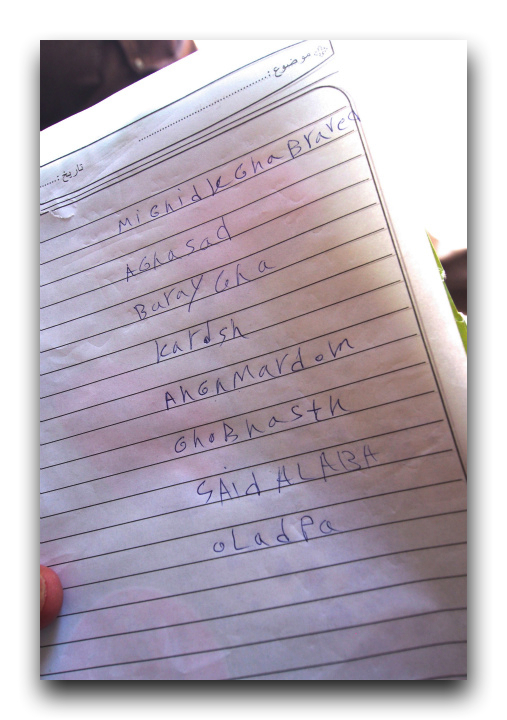 موضوع:
تاریخ:
MiGhidleGhaBrared
AGhasad
BarayGha
Kardsh
AhGhMardom
GhoBhasth
SAid ALABA
oLadPa